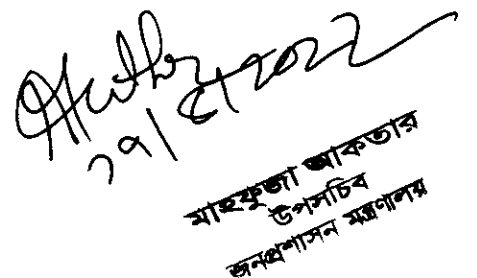 ২৭/৫/২০২২
মাহফুজা আকতার
উপসচিব
জনপ্রশাসন মন্ত্রণালয়